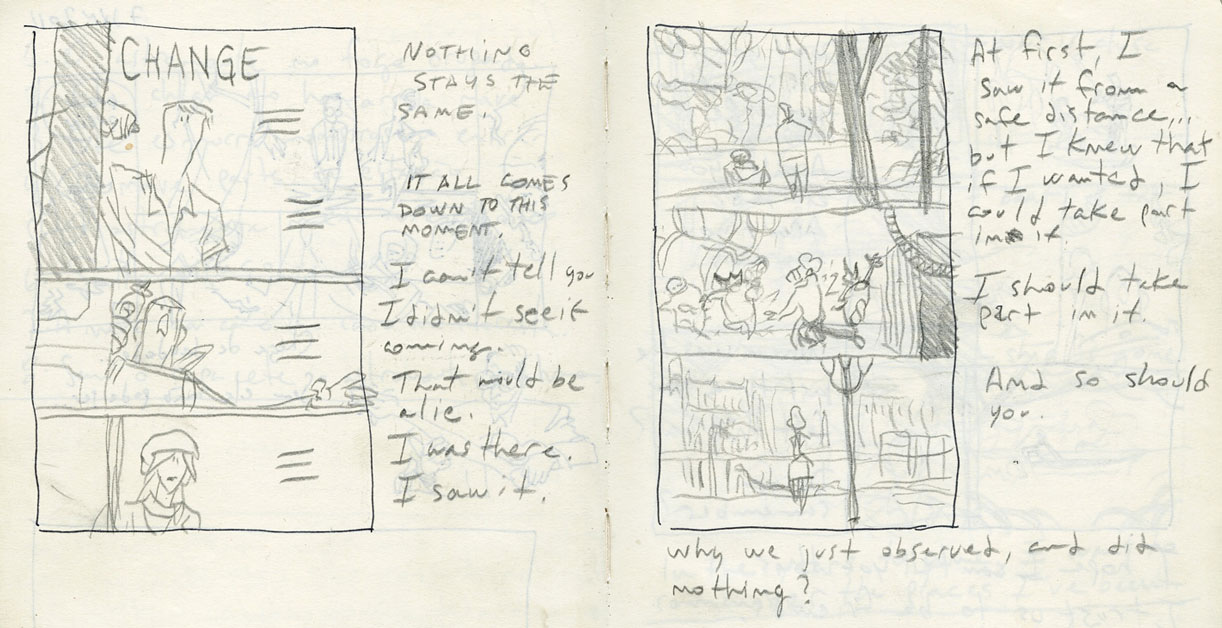 CHANGE
NOTHING
STAYS THE
SAME.
IT ALL COMES
DOWN TO THIS
MOMENT.
I can't tell you
I didn't see it
coming.
That would be
a lie.
I was there.
I saw it.
At first, I
saw it from a
safe distance...
but I knew that
if I wanted, I
could take part
in it.
I should take
part in it.
And so should
you.
why we just observed, and did
nothing?